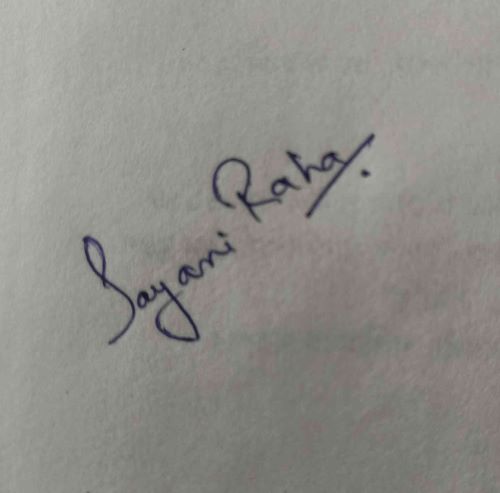 Sayani Raha.